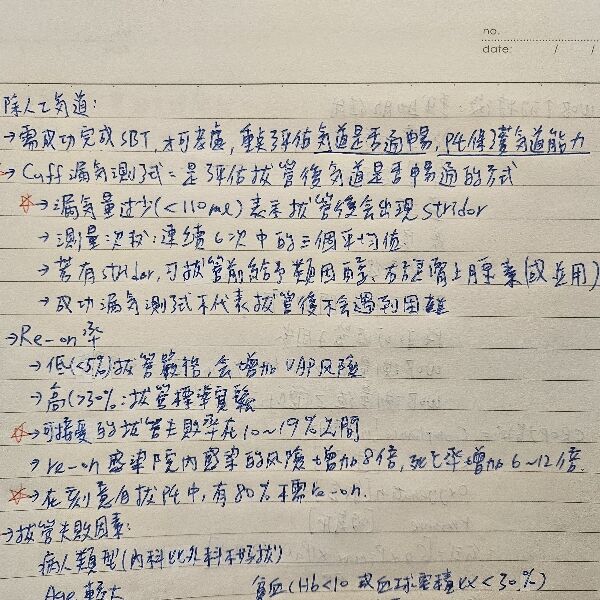 no.
date: / /
除人工気道:
→需成功完成SBT,才可考慮,重點評估気道是否通暢,pt保護気道能力
→Cuff漏気測試=是評估拔管後気道是否暢通的方式
☆→漏気量过少(<110ml)表示拔管後会出現stridor
→測量次數:連續6次中的三個平均值
→若有stridor,可拔管前給予類固醇、右旋腎上腺素(或並用)
→成功漏気測試不代表拔管後不会遇到困難
→Re-on率
→低(<5%)拔管嚴格,会增加VAP风險
→高(>30%:拔管標準寬鬆
☆→可接受的拔管失敗率在10~19%之間
→re-on感染院内感染的风險增加8倍,死亡率增加6~12倍.
☆→在刻意自拔pt中,有80%不需re-on.
→拔管失敗因素:
病人類型(内科比外科不好拔)
Age較大 貧血(Hb<10 或血球容積<30%)